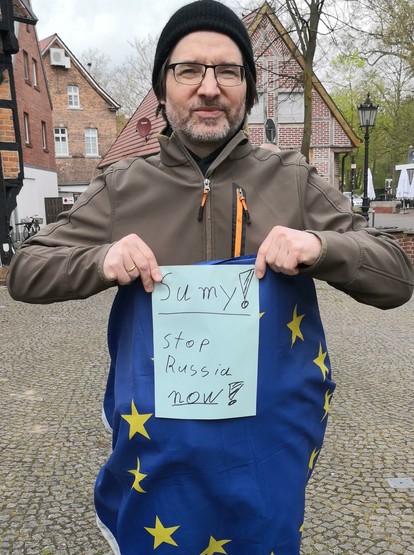 Sumy!
stop
Russia
now!